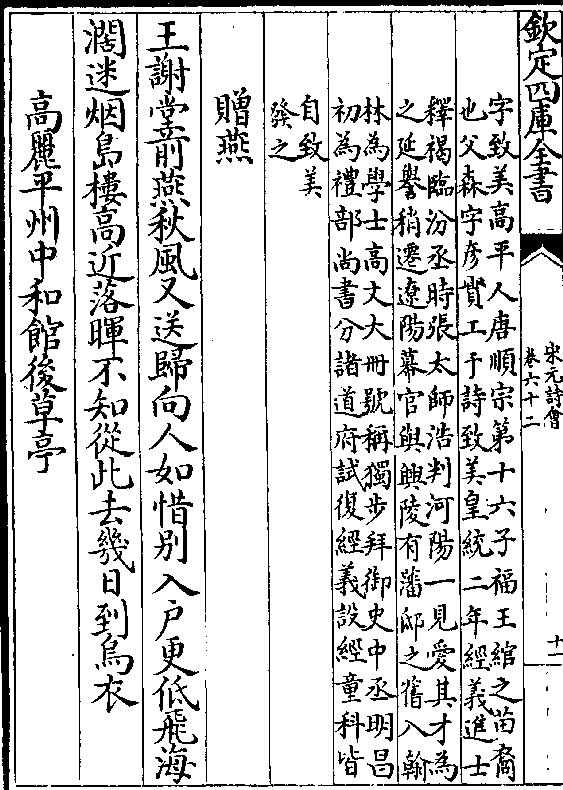 欽定四庫全書
宋元詩會
卷六十二
十一
字致美高平人唐順宗第十六子福王綰之苗裔
也父森字彥實工于詩致美皇統二年經義進士
釋褐臨汾丞時張太師浩判河陽一見愛其才為
之延譽稍遷遼陽幕官與興陵有藩邸之舊入翰
林為學士高文大冊號稱獨步拜御史中丞明昌
初為禮部尚書分諸道府試復經義設經童科皆
自致美
發之
贈燕
王謝堂前燕秋風又送歸向人如惜別入户更低飛海
濶迷烟島樓高近落暉不知從此去幾日到烏衣
高麗平州中和館後草亭